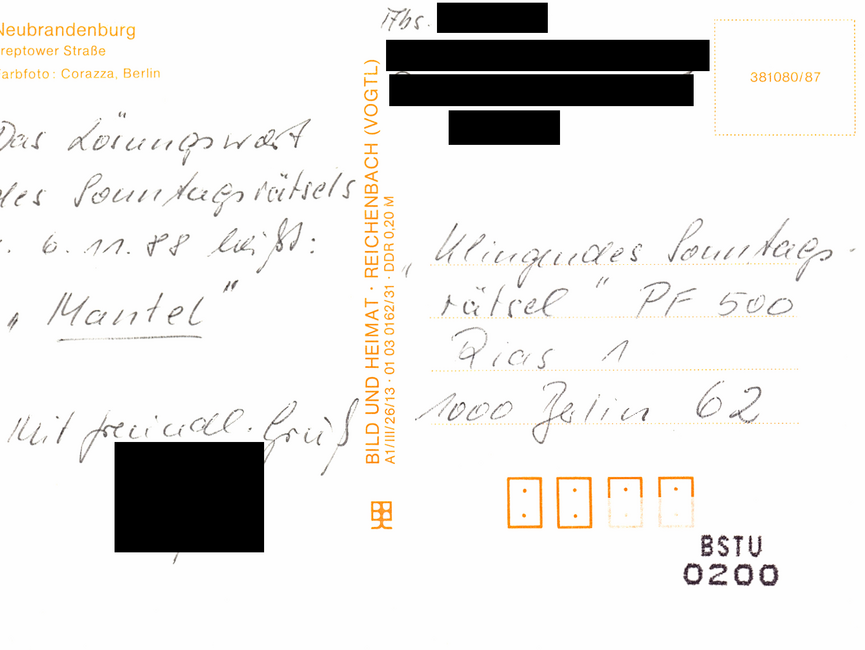 Neubrandenburg
reptower Straße
arbfoto: Corazza, Berlin
Das Lösungswort
des Sonntagsrätsels
. 6. 11. 88 heißt:
„Mantel"
Mit freundl. Gruß
BILD UND HEIMAT · REICHENBACH (VOGTL)
A1/III/26/13 · 01 03 0162/31 · DDR 0,20 M
Abs.
381080/87
„Klingendes Sonntags-
rätsel" PF 500
Rias 1
1000 Berlin 62
BSTU
0200